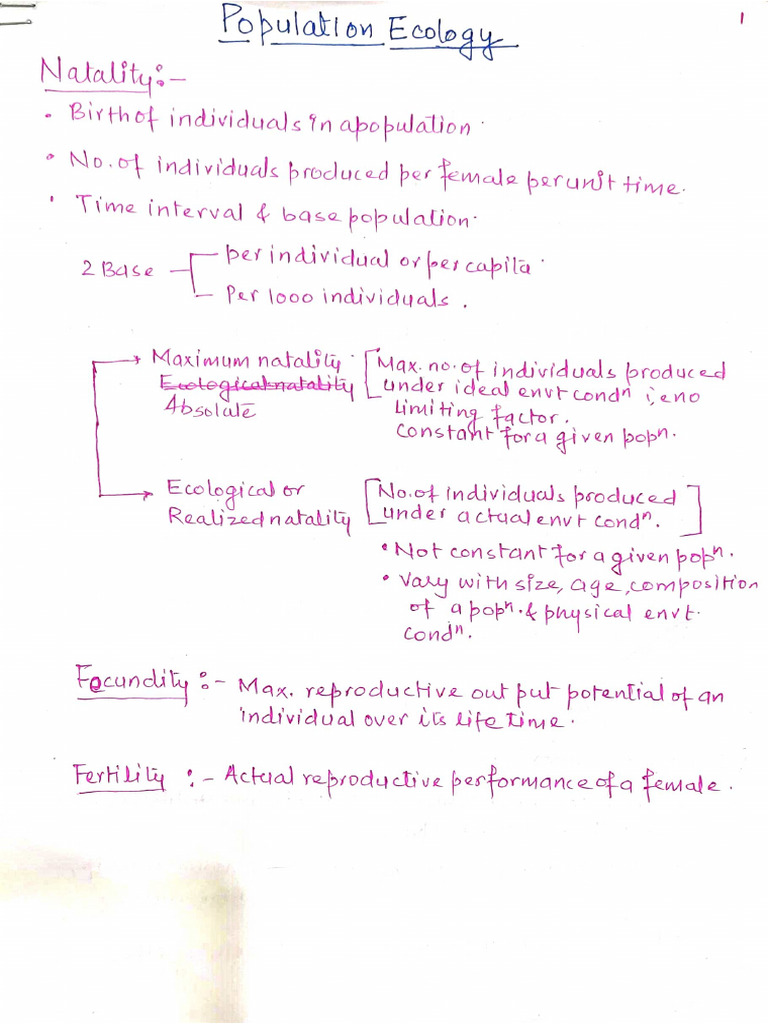 Population Ecology
1
Natality:-
• Birth of individuals in a population.
• No. of individuals produced per female per unit time.
• Time interval & base population.
2 Base
per individual or per capita
Per 1000 individuals.
Maximum natality
Ecological natality
Absolute
[Max. no. of individuals produced
under ideal envt condⁿ i,e no
Limiting factor.
constant for a given popⁿ.
Ecological or
Realized natality
[No. of individuals produced
under actual envt condⁿ.]
• Not constant for a given popⁿ.
• Vary with size, age, composition
of a popⁿ. & physical envt.
condⁿ.
Fecundity :- Max. reproductive out put potential of an
individual over its life time.
Fertility :- Actual reproductive performance of a female.